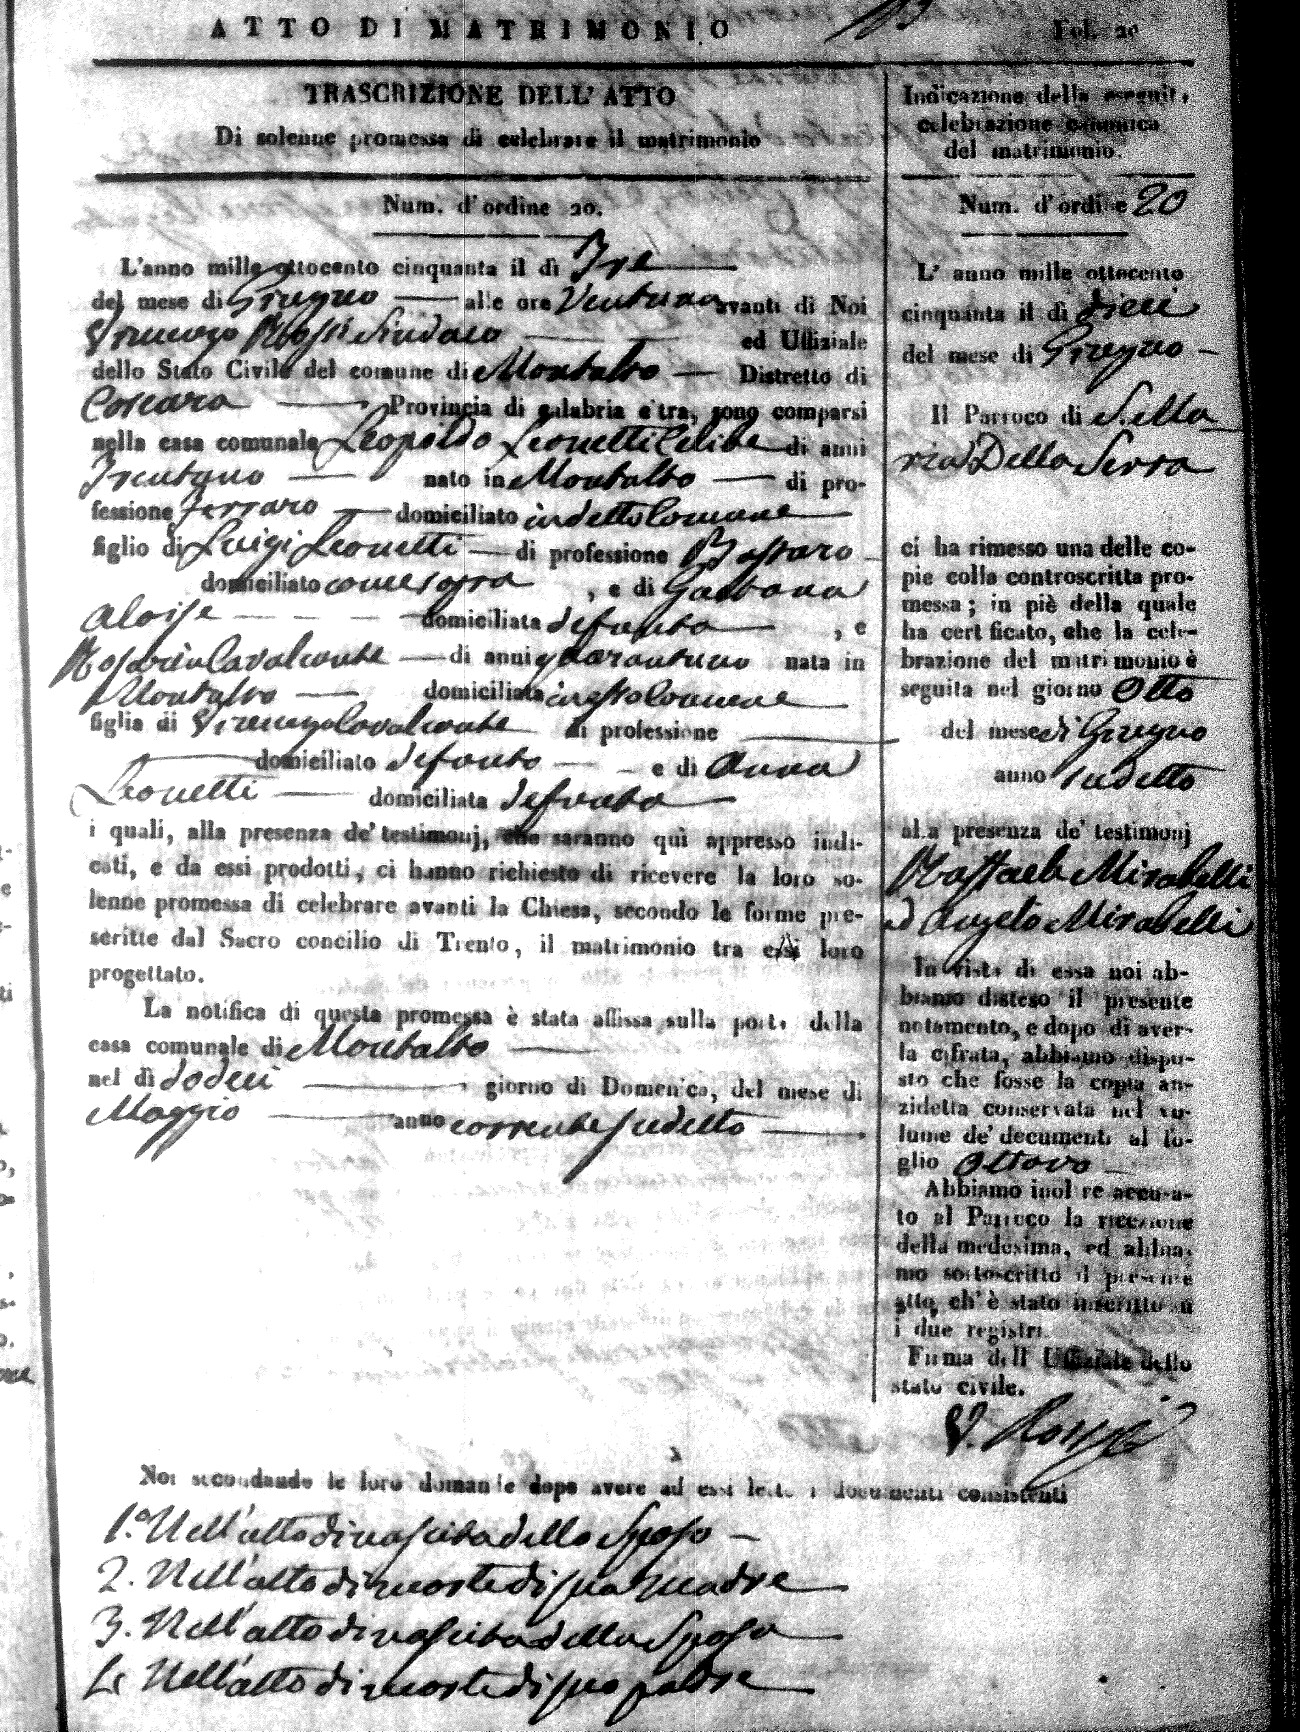 ATTO DI MATRIMONIO
Fol. 20
TRASCRIZIONE DELL' ATTO
Di solenne promessa di celebrare il matrimonio
Num. d' ordine 20.
L'anno mille ottocento cinquanta il dì Tre
del mese di Giugno alle ore Ventuno avanti di Noi
Vincenzo Rossi Sindaco ed Uffiziale
dello Stato Civile del comune di Montalto Distretto di
Cosenza Provincia di calabria citra, sono comparsi
nella casa comunale Leopoldo Leonetti Celibe di anni
Trentuno nato in Montalto di pro-
fessione Ferraro domiciliato in detto Comune
figlio di Luigi Leonetti di professione
domiciliato come sopra , e di Gaetana
Aloise domiciliata defunta , e
Rosaria Cavalcante di anni quarantuno nata in
Montalto domiciliata in esso Comune
figlia di Vincenzo Cavalcante di professione
domiciliato defunto e di Anna
Leonetti domiciliata defunta
i quali, alla presenza de' testimonj, che saranno quì appresso indi-
cati, e da essi prodotti, ci hanno richiesto di ricevere la loro so-
lenne promessa di celebrare avanti la Chiesa, secondo le forme pre-
scritte dal Sacro concilio di Trento, il matrimonio tra essi loro
progettato.
La notifica di questa promessa è stata affissa sulla porta della
casa comunale di Montalto
nel dì dodeci , giorno di Domenica, del mese di
Maggio anno corrente sudetto
Indicazione della seguita
celebrazione canonica
del matrimonio.
Num. d' ordine 20
L' anno mille ottocento
cinquanta il dì dieci
del mese di Giugno
Il Parroco di S. Ma-
ria Della Serra
ci ha rimesso una delle co-
pie colla controscritta pro-
messa ; in piè della quale
ha certificato, che la cele-
brazione del matrimonio è
seguita nel giorno Otto
del mese di Giugno
anno sudetto
alla presenza de' testimonj
Raffaele Mirabelli
ed Angelo Mirabelli
In vista di essa noi ab-
biamo disteso il presente
notamento, e dopo di aver-
la cifrata, abbiamo dispo-
sto che fosse la copia an-
zidetta conservata nel vo-
lume de' documenti al fo-
glio Ottavo
Abbiamo inoltre accusa-
to al Parroco la ricezione
della medesima, ed abbia-
mo sottoscritto il presente
atto, ch' è stato inscritto su
i due registri
Firma dell' Uffiziale dello
stato civile.
V. Rossi
Noi secondando le loro domande dopo avere ad essi letto i documenti consistenti
1.º Nell'atto di nascita dello Sposo
2. Nell'atto di morte di sua madre
3. Nell'atto di nascita della Sposa
4 Nell'atto di morte di suo padre